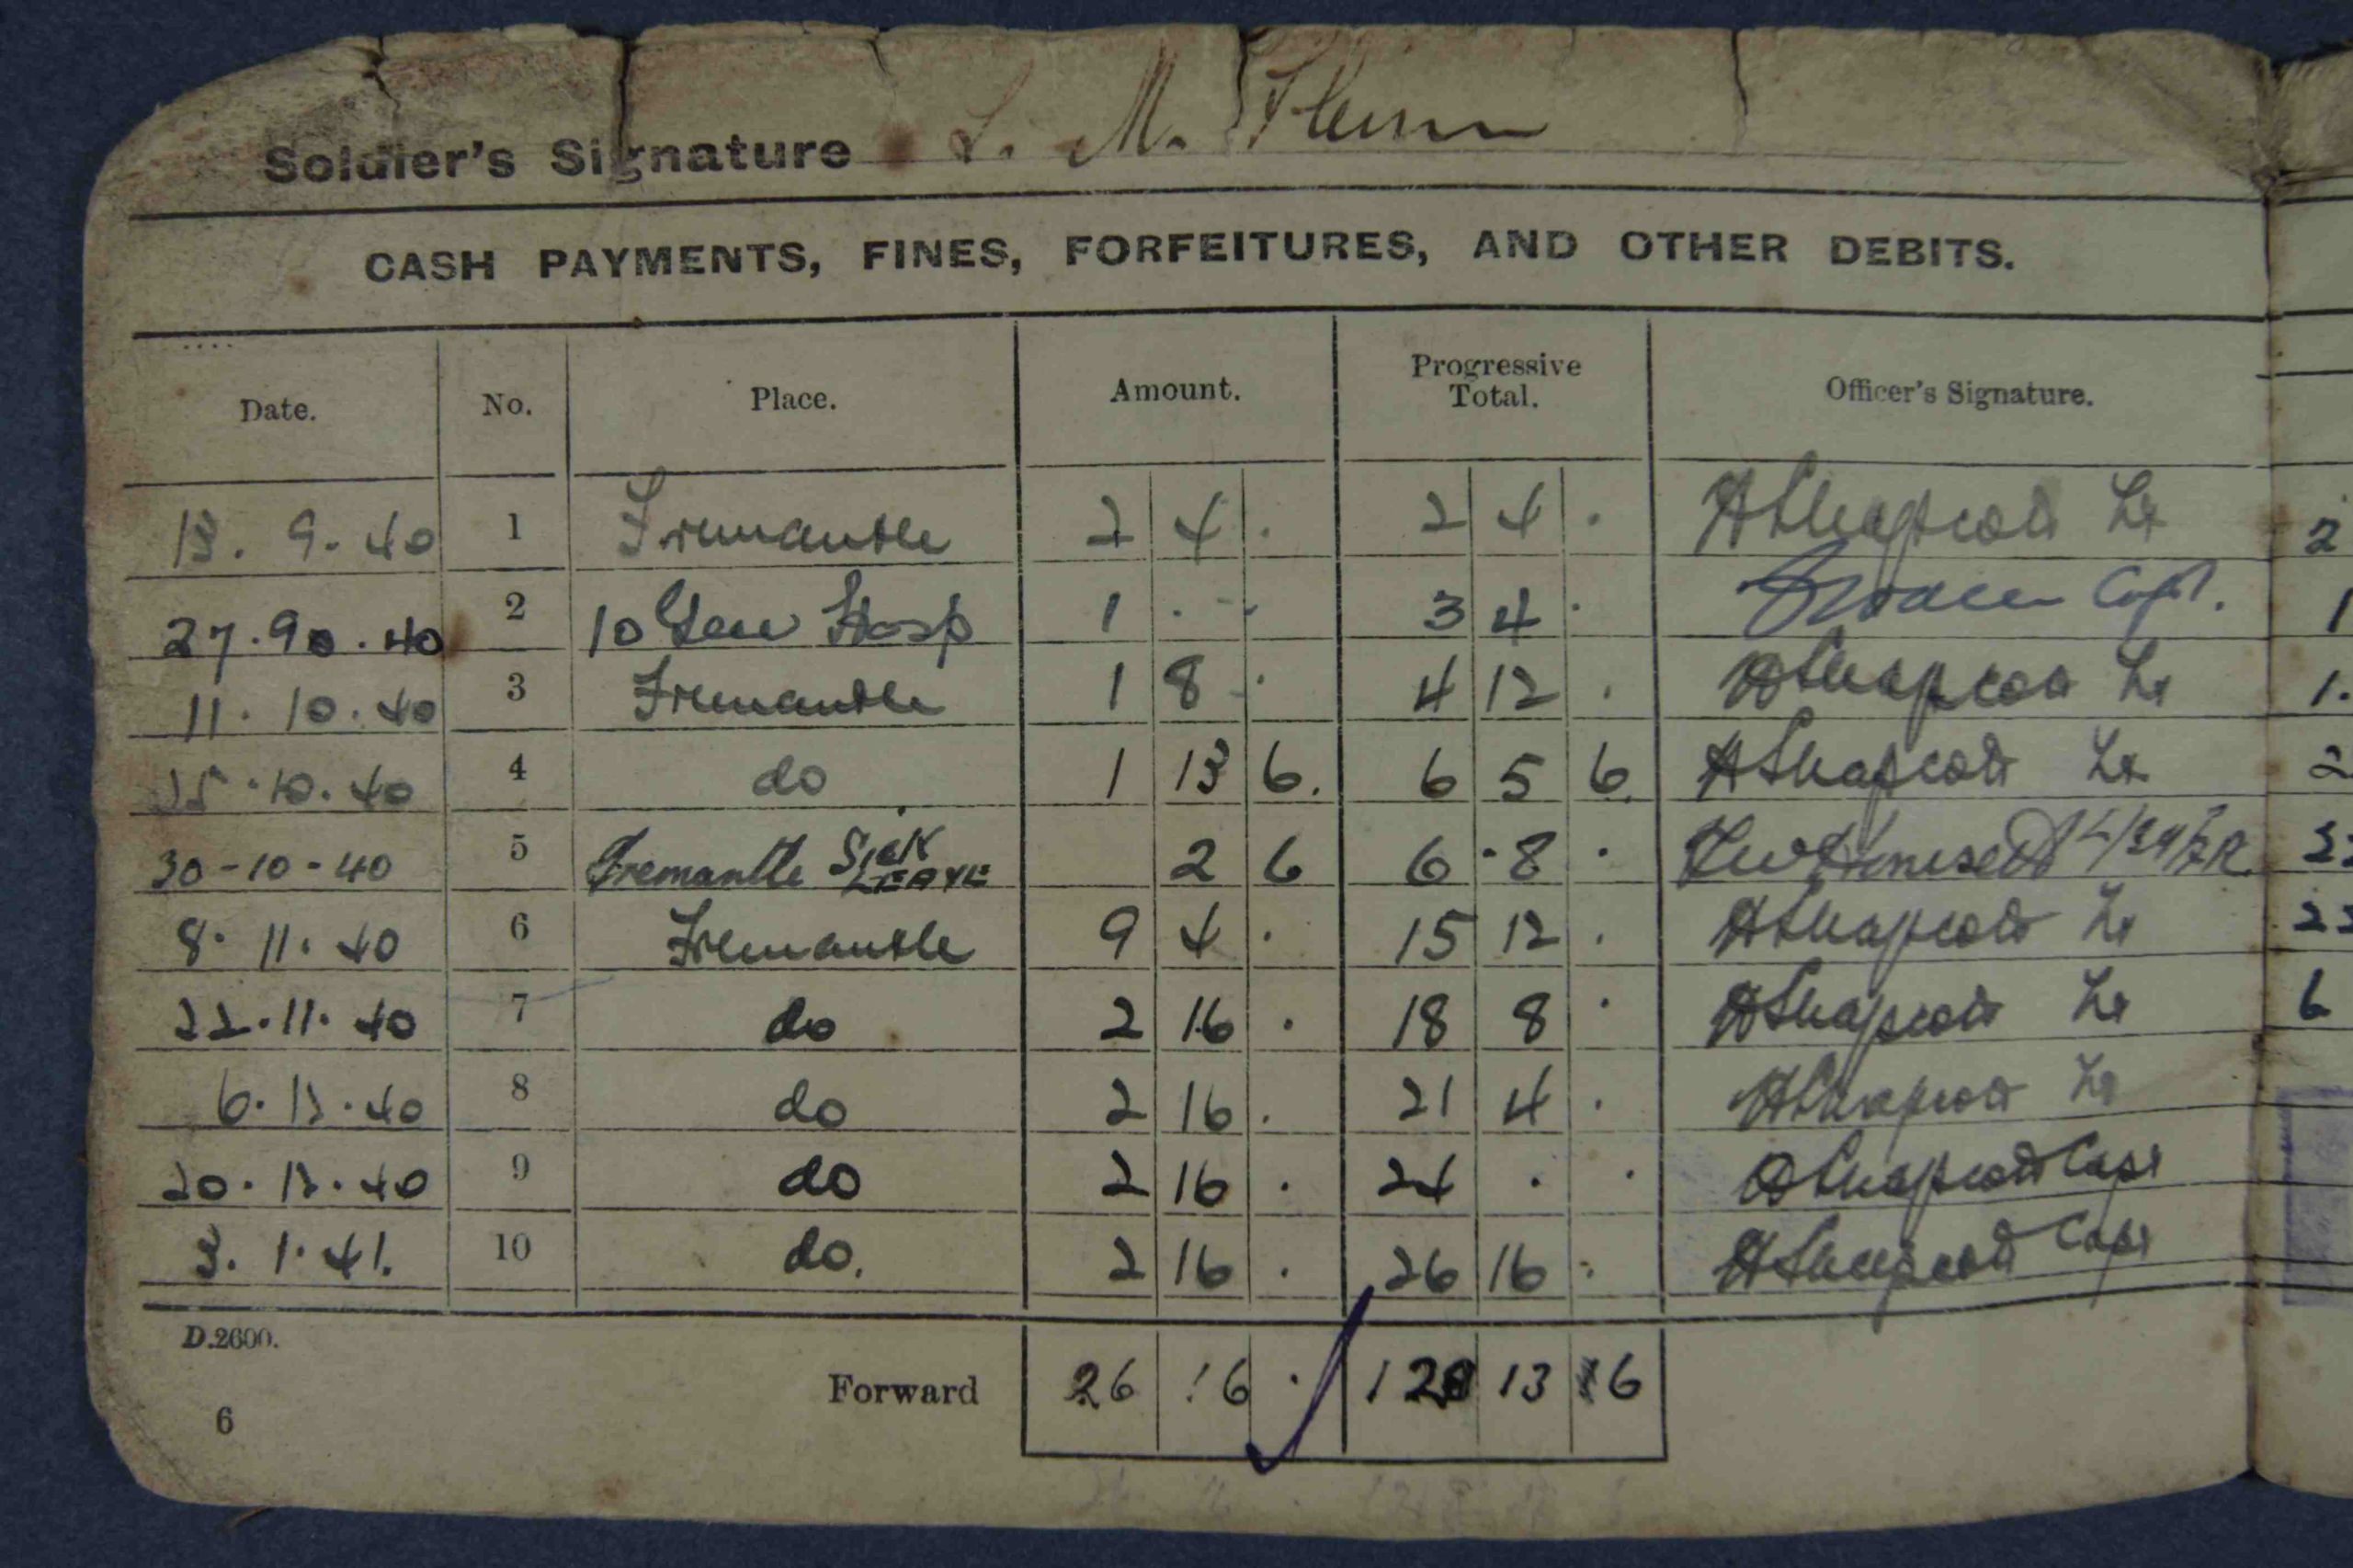 Soldier's Signature L. M.
CASH PAYMENTS, FINES, FORFEITURES, AND OTHER DEBITS.
Date. No. Place. Amount. Progressive Total. Officer's Signature.
13. 9. 40 1 Fremantle 2 4 . 2 4 . Lt
27.9.40 2 10 Gen Hosp 1 . . 3 4 . Capt.
11. 10. 40 3 Fremantle 1 8 . 4 12 . Lt
25.10.40 4 do 1 13 6. 6 5 6. Lt
30-10-40 5 Fremantle SICK LEAVE 2 6 6 . 8 .
8. 11. 40 6 Fremantle 9 4 . 15 12 . Lt
22.11.40 7 do 2 16 . 18 8 . Lt
6.12.40 8 do 2 16 . 21 4 . Lt
20.12.40 9 do 2 16 . 24 . . Capt
3. 1. 41. 10 do. 2 16 . 26 16 . Capt
D.2600.
Forward 26 16 . 13 6
6
2
1
1.
2
6